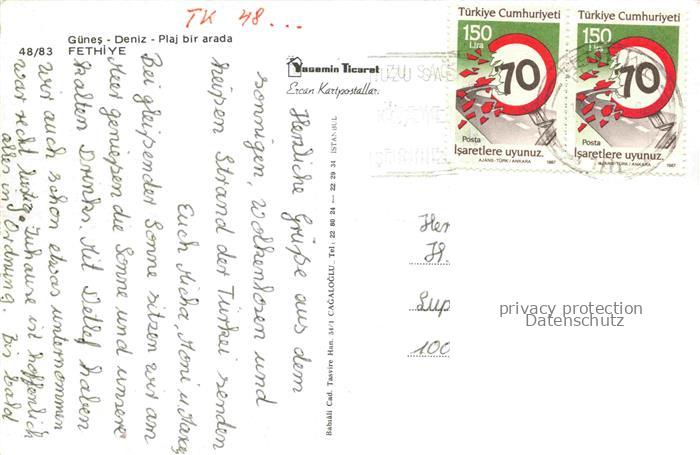 TK 48...
Güneş - Deniz - Plaj bir arada
48/83 FETHİYE
Yasemin Ticaret
Ercan Kartpostalları
Babıâli Cad. Tasvire Han. 34/1 CAĞALOĞLU Tel: 22 80 24 — 22 29 34 İSTANBUL
Herzliche Grüße aus dem
sonnigen, wolkenlosen und
heißen Strand der Türkei senden
Euch Micha, Moni u
Bei gleißender Sonne sitzen wir am
Meer genießen die Sonne und unsere
kalten Drinks. Mit Detlef haben
wir auch schon etwas unternommen
war recht lustig. Zuhause ist hoffentlich
alles in Ordnung. Bis bald
Türkiye Cumhuriyeti
150
Lira
70
Posta
İşaretlere uyunuz.
AJANS-TÜRK/ANKARA 1987
Türkiye Cumhuriyeti
150
Lira
70
Posta
İşaretlere uyunuz.
AJANS-TÜRK/ANKARA 1987
Her
H.
Lup
100
privacy protection
Datenschutz